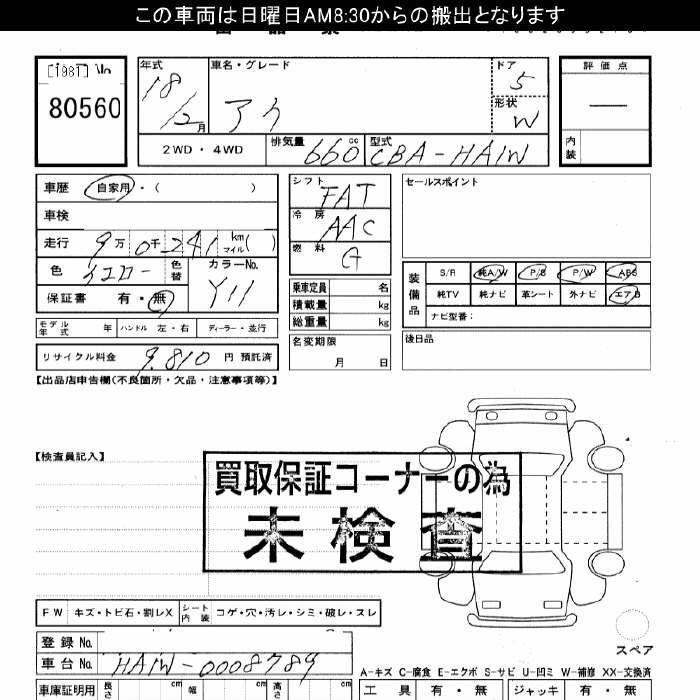 この車両は日曜日AM8:30からの搬出となります
[1981] No
80560
年式
18
12月
車名・グレード
アイ
ドア
5
形状
W
評価点
内装
2WD・4WD
排気量 660 cc
型式 CBA-HA1W
車歴 自家用・( )
車検
走行 9万0千241 km マイル( )
色 イエロー 色替 カラーNo. Y11
保証書 有・無
モデル年式 年 ハンドル 左・右 ディーラー・並行
リサイクル料金 9,810 円 預託済
シフト FAT
冷房 AAC
燃料 G
乗車定員 名
積載量 kg
総重量 kg
名変期限
月 日
セールスポイント
装備品
S/R 純A/W P/S P/W ABS
純TV 純ナビ 革シート 外ナビ エアB
ナビ型番:
後日品
【出品店申告欄(不良箇所・欠品・注意事項等)】
【検査員記入】
買取保証コーナーの為
未検査
FW キズ・トビ石・割レX シート内装 コゲ・穴・汚レ・シミ・破レ・スレ
登録No.
車台No. HA1W-0008789
スペア
A-キズ C-腐食 E-エクボ S-サビ U-凹ミ W-補修 XX-交換済
車庫証明用 長さ cm 幅 cm 高さ cm
工具 有・無 ジャッキ 有・無